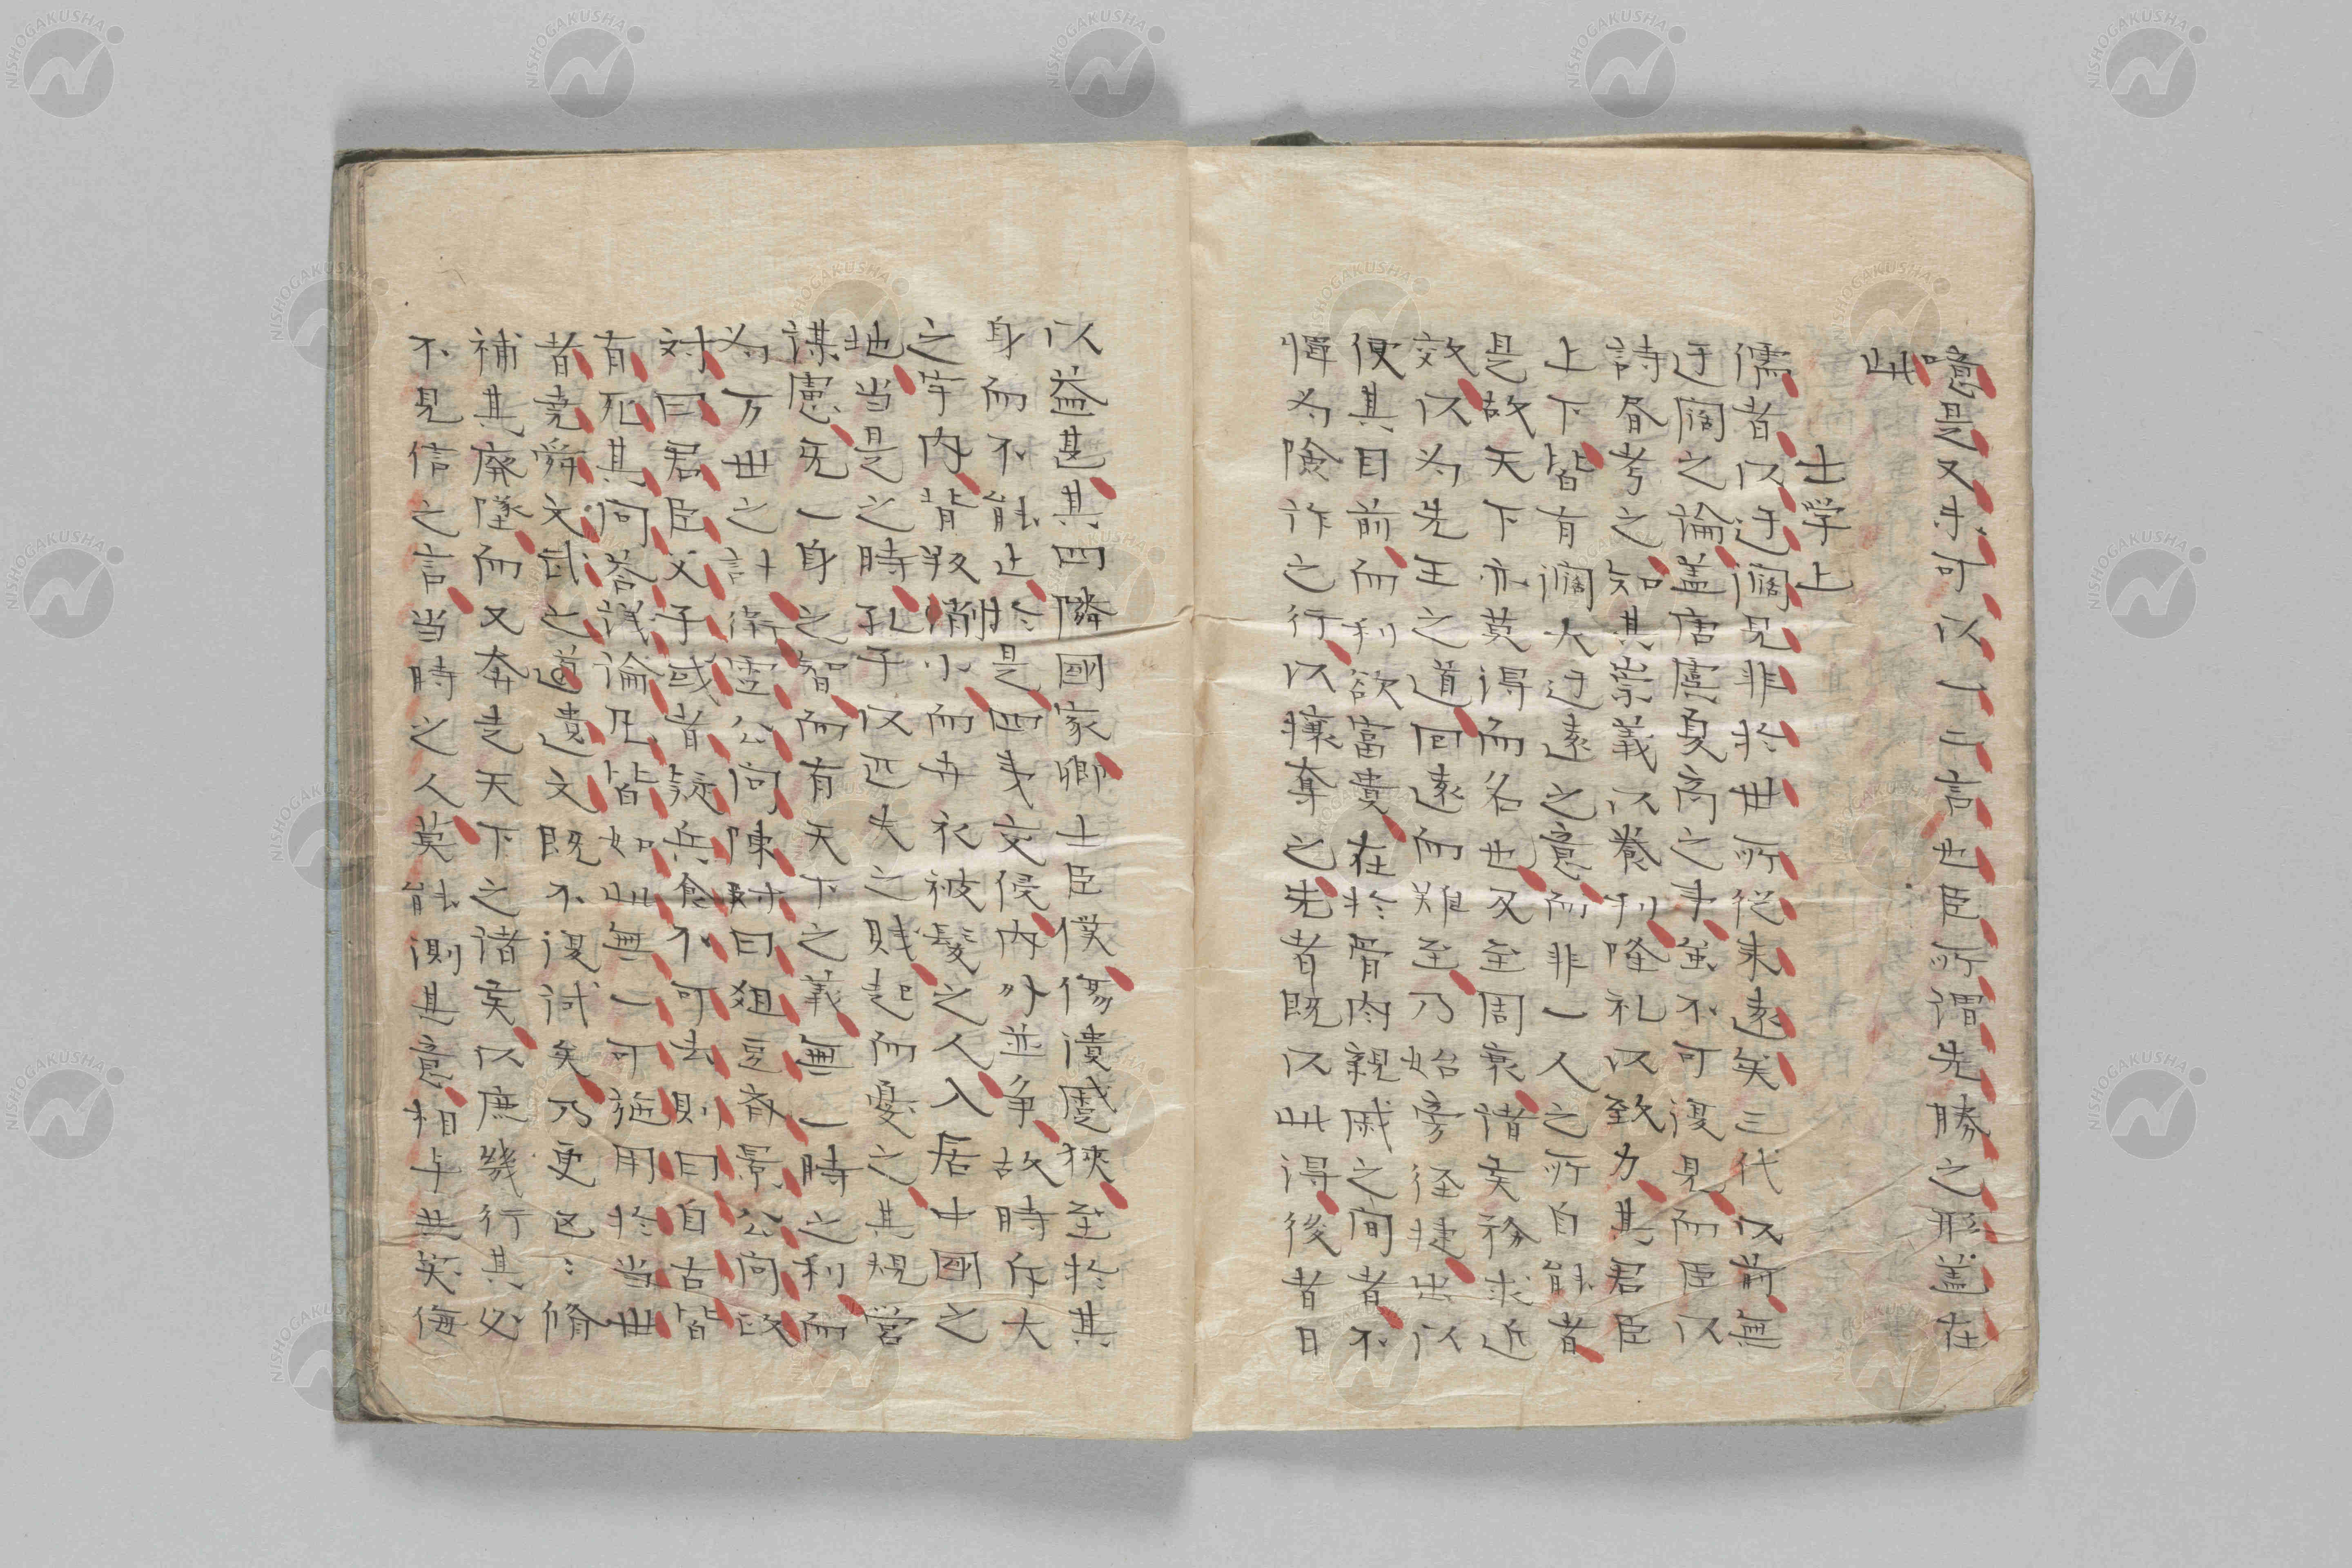 噫是又未可以一二言也臣所謂先勝之形盖在
此
士学上
儒者以迂濶見非於世所從来遠矣三代以前無
迂濶之論盖唐虞夏商之事虽不可復見而臣以
詩書考之知其崇義以養利隆礼以致力其君臣
上下皆有濶大迂遠之意而非一人之所自能者
是故天下亦莫得而名也及至周衰諸侯務求近
效以為先王之道回遠而難至乃始旁径捷出以
便其目前而利欲富貴在於骨肉親戚之間者不
憚為險詐之行以攘奪之先者既以此得後者日
以益甚其四隣國家卿士臣僕傷潰蹙狹至於其
身而不能止於是四夷交侵内外並争故時斥大
之宇内背叛削小而卉衣被髮之人入居中國之
地当是之時孔子以匹夫之賎起而憂之其規営
謀慮旡一身之智而有天下之義無一時之利而
為万世之計衛霊公問陳対曰俎豆斉景公問政
対曰君臣父子或者疑兵食不可去則曰自古皆
有死其問荅議論凡皆如此無一可施用於当世
者堯舜文武之道遺文既不復試矣乃更区〻脩
補其廃墜而又奔走天下之諸矦以庶幾行其必
不見信之言当時之人莫能測其意相与共笑侮
NISHOGAKUSHA